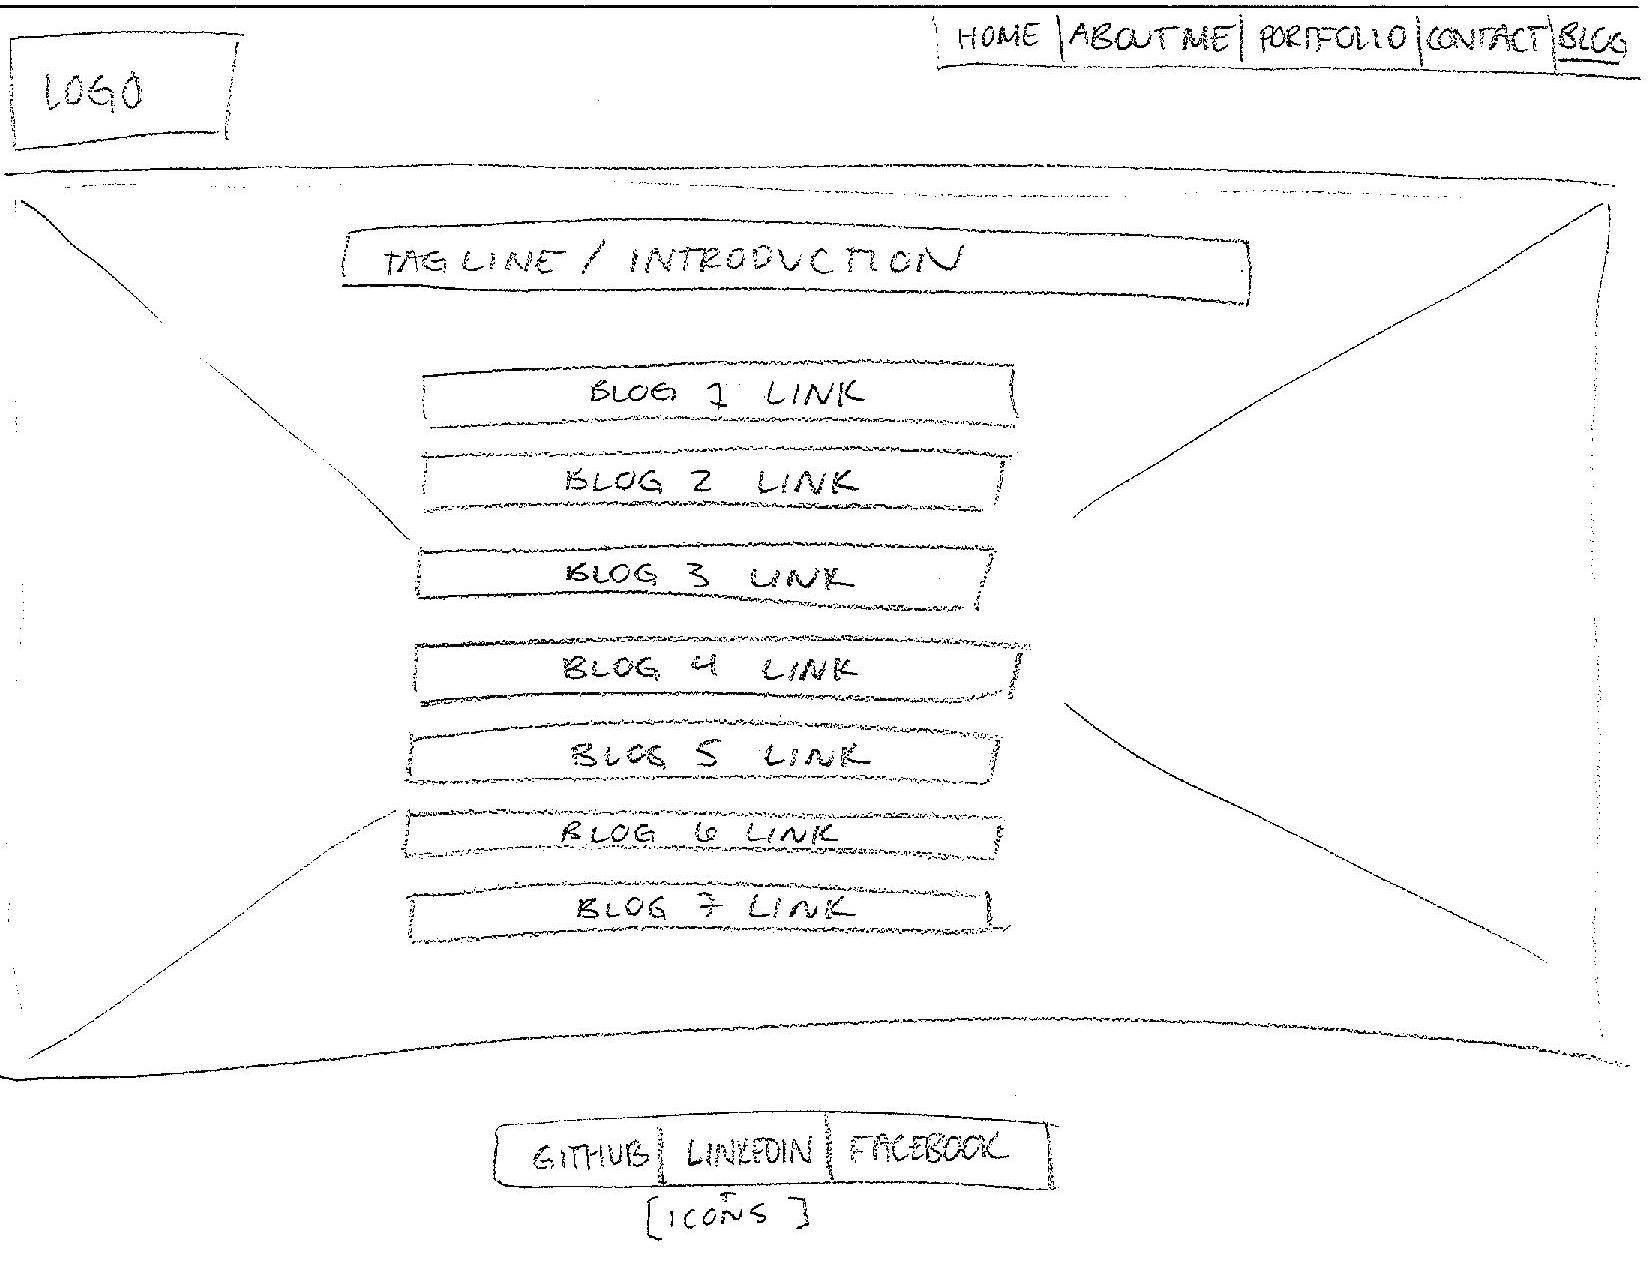 HOME | ABOUT ME | PORTFOLIO | CONTACT | BLOG
LOGO
TAG LINE / INTRODUCTION
BLOG 1 LINK
BLOG 2 LINK
BLOG 3 LINK
BLOG 4 LINK
BLOG 5 LINK
BLOG 6 LINK
BLOG 7 LINK
GITHUB | LINKEDIN | FACEBOOK
[ICONS]